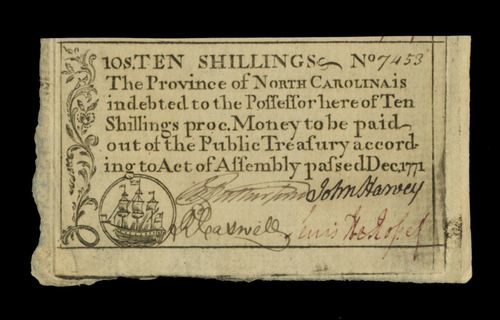 10S. TEN SHILLINGS No 7453
The Province of NORTH CAROLINA is
indebted to the Poſſeſſor here of Ten
Shillings proc. Money to be paid
out of the Public Treaſury accord-
ing to Act of Aſſembly paſſed Dec, 1771
John Harvey
R Caswell Lewis